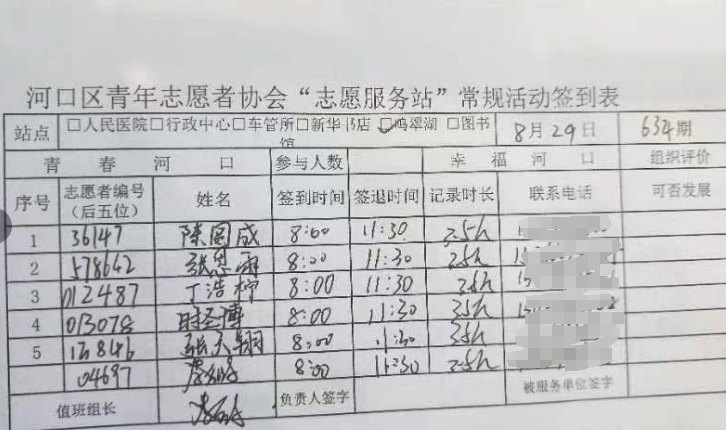 河口区青年志愿者协会“志愿服务站”常规活动签到表
站点 □人民医院□行政中心□车管所□新华书店 ☑鸿翠湖 □图书馆 8月29日 634期
青春河口 参与人数 幸福河口 组织评价
序号 志愿者编号（后五位） 姓名 签到时间 签退时间 记录时长 联系电话 可否发展
1 36147 陈国成 8:00 11:30 3.5h
2 578642 8:00 11:30 3.5h
3 012487 丁浩柠 8:00 11:30 3.5h
4 013078 时圣博 8:00 11:30 3.5h
5 138846 张天翔 8:00 11:30 3.5h
04697 8:00 11:30 3.5h
值班组长 负责人签字 被服务单位签字